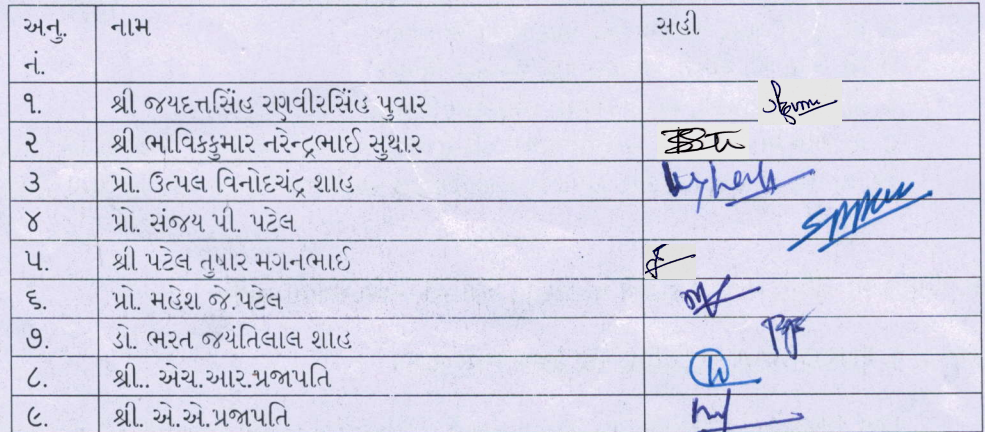 અનુ. નામ સહી
નં.
૧. શ્રી જયદત્તસિંહ રણવીરસિંહ પુવાર
૨ શ્રી ભાવિકકુમાર નરેન્દ્રભાઈ સુથાર
૩ પ્રો. ઉત્પલ વિનોદચંદ્ર શાહ
૪ પ્રો. સંજય પી. પટેલ
૫. શ્રી પટેલ તુષાર મગનભાઈ
૬. પ્રો. મહેશ જે.પટેલ
૭. ડો. ભરત જયંતિલાલ શાહ
૮. શ્રી.. એચ.આર.પ્રજાપતિ
૯. શ્રી. એ.એ.પ્રજાપતિ